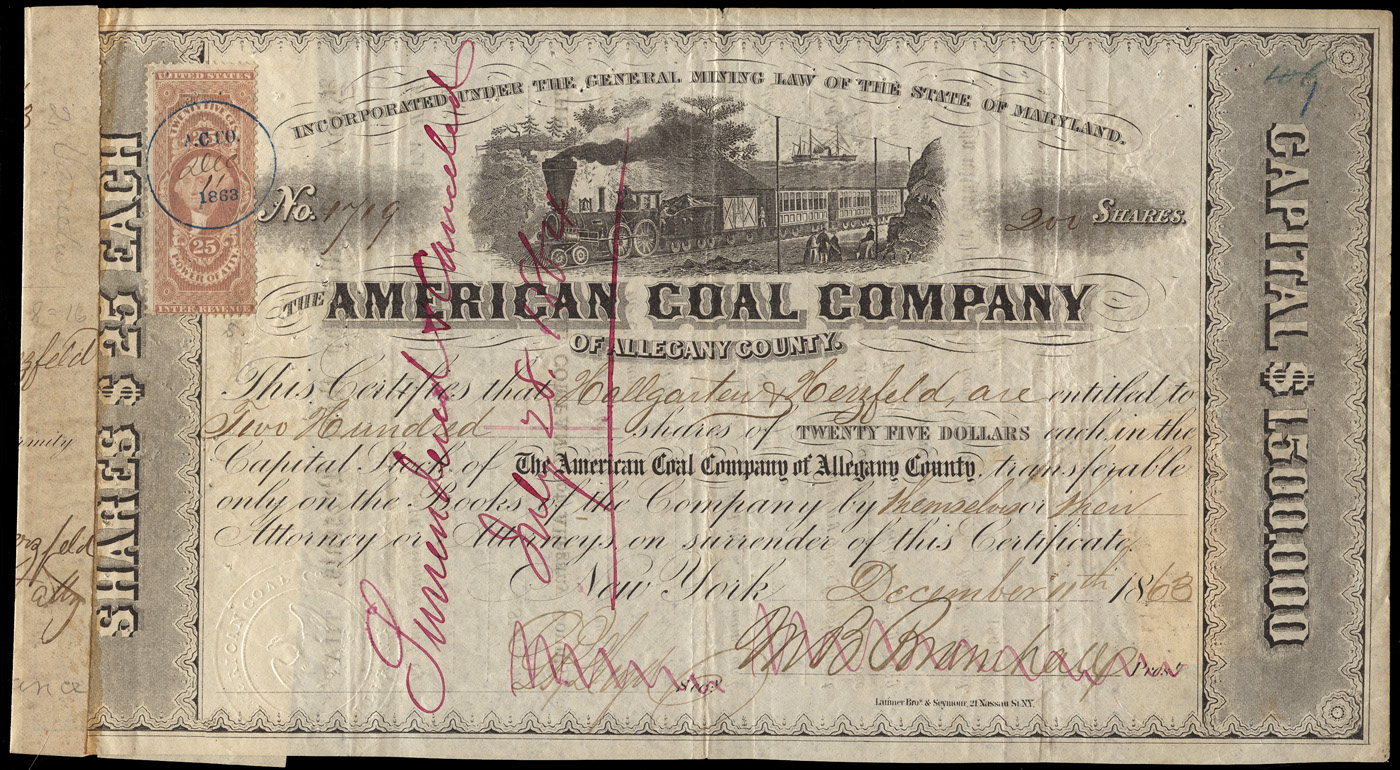 UNITED STATES
25
POWER OF ATT'Y
INTER. REVENUE
A.C.CO.
Dec
11
1863
INCORPORATED UNDER THE GENERAL MINING LAW OF THE STATE OF MARYLAND.
No. 1719
200 SHARES.
THE AMERICAN COAL COMPANY
OF ALLEGANY COUNTY.
This Certifies that Hallgarten & Herzfeld, are entitled to
Two Hundred shares of TWENTY FIVE DOLLARS each, in the
Capital Stock of The American Coal Company of Allegany County, transferable
only on the Books of the Company by themselves or their
Attorney or Attorneys, on surrender of this Certificate.
New York December 11th 1863
Secy.
M B Bramhall Prest
Latimer Bros. & Seymour, 21 Nassau St. N.Y.
SHARES $ 25 EACH
CAPITAL $ 1500000
Surrendered & Canceled
July 28
AMERICAN COAL
rzfeld
erzfeld
Atty